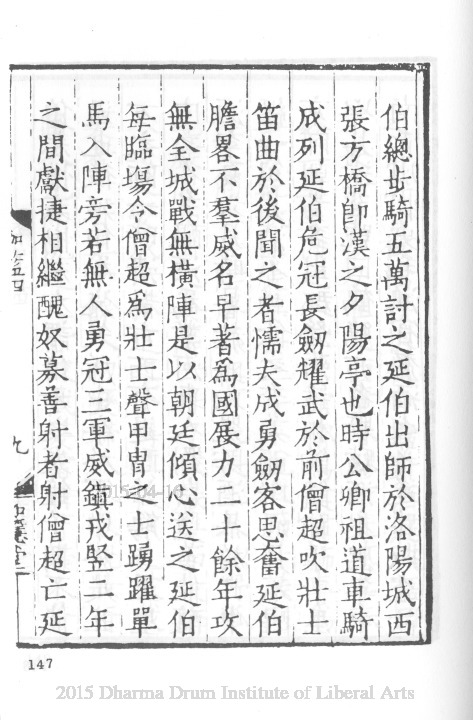 伯總步騎五萬討之延伯出師於洛陽城西
張方橋卽漢之夕陽亭也時公卿祖道車騎
成列延伯危冠長劒耀武於前僧超吹壯士
笛曲於後聞之者懦夫成勇劒客思奮延伯
膽畧不羣威名早著爲國展力二十餘年攻
無全城戰無橫陣是以朝廷傾心送之延伯
每臨塲令僧超爲壯士聲甲冑之士踴躍單
馬入陣旁若無人勇冠三軍威鎭戎竪二年
之間獻捷相繼醜奴募善射者射僧超亡延
加藍四
九
如隱堂
147
2015 Dharma Drum Institute of Liberal Arts